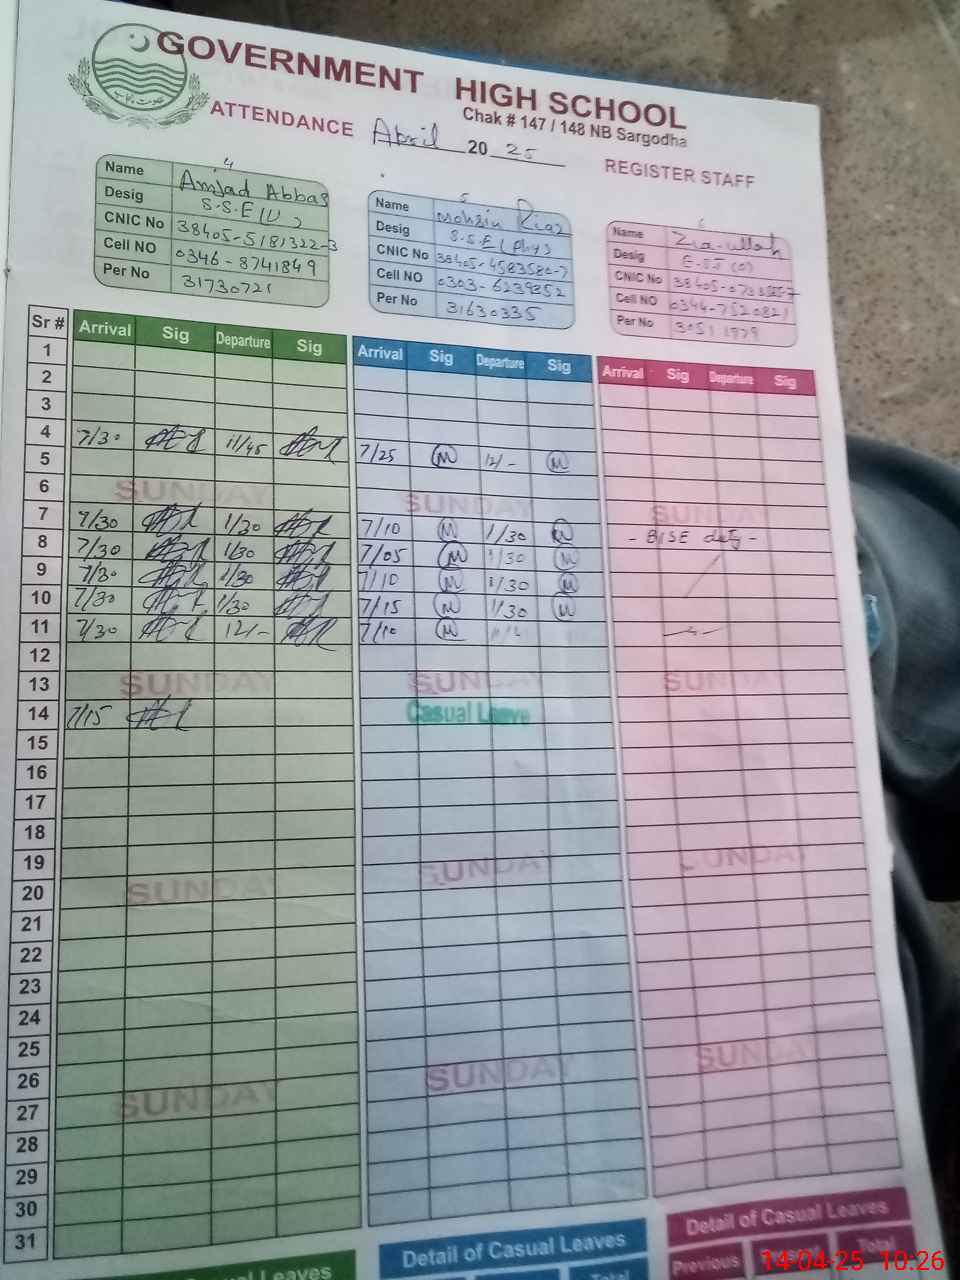 GOVERNMENT HIGH SCHOOL
Chak # 147 / 148 NB Sargodha
ATTENDANCE April 20 25 REGISTER STAFF
4
Name Amjad Abbas
Desig S.S.E (U)
CNIC No 38405-5181322-3
Cell NO 0346-8741849
Per No 31730721
5
Name Mohsin Riaz
Desig S.S.E (Phy)
CNIC No 38405-4583580-7
Cell NO 0303-6239352
Per No 31630335
6
Name Zia-ullah
Desig
CNIC No
Cell NO 0344-7520821
Per No
Sr # Arrival Sig Departure Sig Arrival Sig Departure Sig Arrival Sig Departure Sig
1
2
3
4 7/30 11/45 7/25 M 12/- M
5
6 SUNDAY SUNDAY SUNDAY
7 7/30 1/30 7/10 M 1/30 M - BISE duty -
8 7/30 1/30 7/05 M 1/30 M
9 7/30 1/30 7/10 M 1/30 M
10 7/30 1/30 7/15 M 1/30 M
11 7/30 12/- 7/10 M
12
13 SUNDAY SUNDAY SUNDAY
14 7/15 Casual Leave
15
16
17
18
19
20 SUNDAY SUNDAY SUNDAY
21
22
23
24
25
26
27 SUNDAY SUNDAY SUNDAY
28
29
30
31
Casual Leaves Detail of Casual Leaves Detail of Casual Leaves
Total Previous Total
14-04-25 10:26